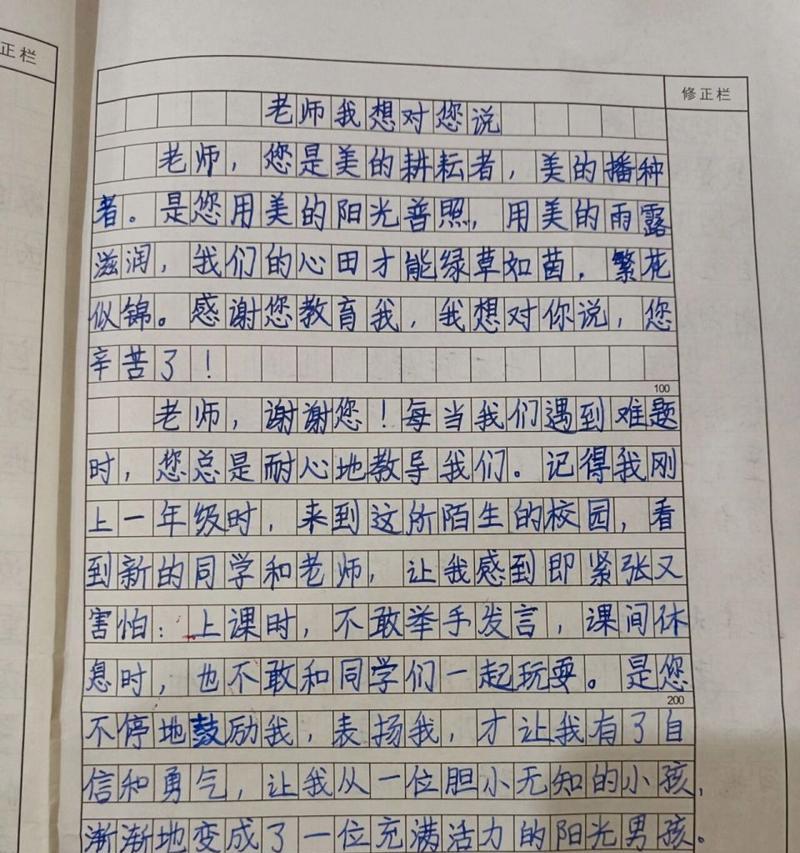 正栏
修正栏
老师我想对您说
老师，您是美的耕耘者，美的播种
者。是您用美的阳光普照，用美的雨露
滋润，我们的心田才能绿草如茵，繁花
似锦。感谢您教育我，我想对你说，您
辛苦了！
100
老师，谢谢您！每当我们遇到难题
时，您总是耐心地教导我们。记得我刚
上一年级时，来到这所陌生的校园，看
到新的同学和老师，让我感到即紧张又
害怕：上课时，不敢举手发言，课间休
息时，也不敢和同学们一起玩耍。是您
200
不停地鼓励我，表扬我，才让我有了自
信和勇气，让我从一位胆小无知的小孩，
渐渐地变成了一位充满活力的阳光男孩。